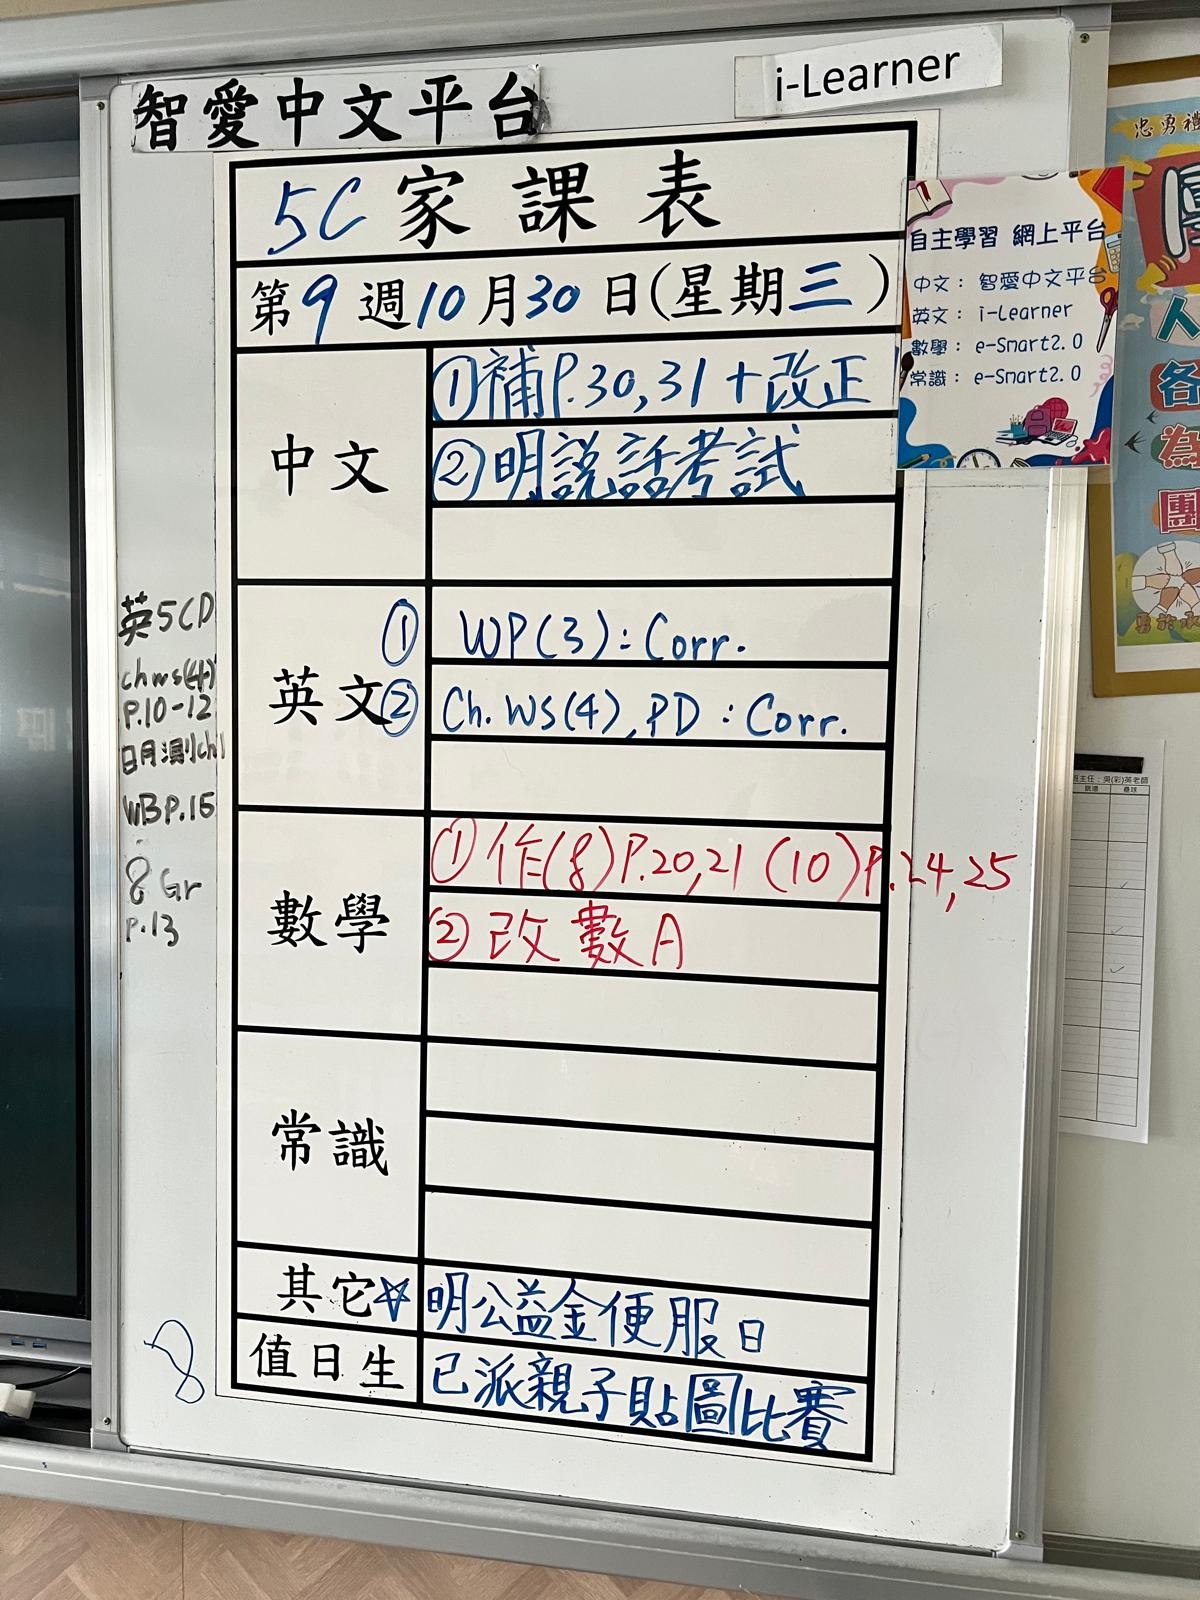 智愛中文平台
i-Learner
5C 家課表
第9週10月30日(星期三)
中文
①補P.30,31+改正
②明說話考試
英文
① WP(3):Corr.
② Ch.WS(4),PD:Corr.
數學
①作(8)P.20,21 (10)P.24,25
②改數A
常識
其它
☆明公益金便服日
值日生
已派親子貼圖比賽
英5CD
ch ws(4)
P.10-12
WBP.15
8 Gr
P.13
8
自主學習 網上平台
中文：智愛中文平台
英文：i-Learner
數學：e-Smart2.0
常識：e-Smart2.0
忠勇禮
團
人
各
為
團